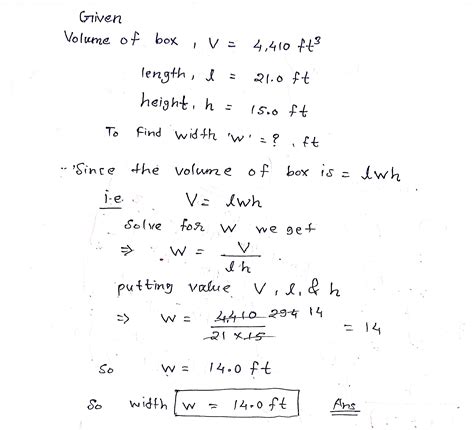 Given
Volume of box , V = 4,410 ft³
length, l = 21.0 ft
height, h = 15.0 ft
To find width 'w' = ? , ft
Since the volume of box is = lwh
i.e. V = lwh
Solve for w we get
⇒ w = V / lh
putting value V, l, & h
⇒ w = 4,410 294 14 / 21 × 15 = 14
So w = 14.0 ft
So width w = 14.0 ft Ans